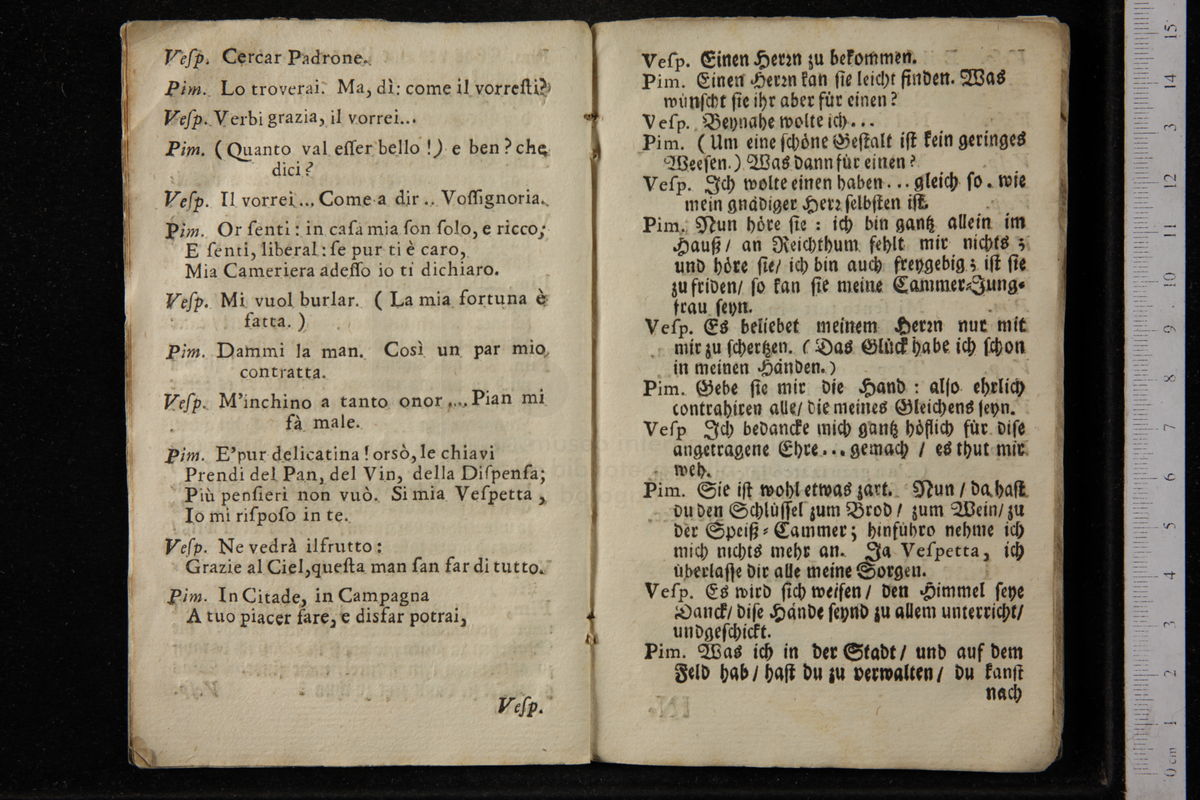 Veſp. Cercar Padrone.
Pim. Lo troverai. Ma, dì: come il vorreſti?
Veſp. Verbi grazia, il vorrei...
Pim. (Quanto val eſſer bello!) e ben? che
dici?
Veſp. Il vorrei... Come a dir.. Voſſignoria.
Pim. Or ſenti: in caſa mia ſon ſolo, e ricco;
E ſenti, liberal: ſe pur ti è caro,
Mia Cameriera adeſſo io ti dichiaro.
Veſp. Mi vuol burlar. (La mia fortuna è
fatta.)
Pim. Dammi la man. Così un par mio
contratta.
Veſp. M'inchino a tanto onor.... Pian mi
fà male.
Pim. E'pur delicatina! orsò, le chiavi
Prendi del Pan, del Vin, della Diſpenſa;
Più penſieri non vuò. Si mia Veſpetta,
Io mi riſpoſo in te.
Veſp. Ne vedrà ilfrutto:
Grazie al Ciel, queſta man ſan far di tutto.
Pim. In Citade, in Campagna
A tuo piacer fare, e disfar potrai,
Veſp.
Veſp. Einen Herꝛn zu bekommen.
Pim. Einen Herꝛn kan ſie leicht finden. Was
wünſcht ſie ihr aber für einen?
Veſp. Beynahe wolte ich...
Pim. (Um eine ſchöne Geſtalt iſt kein geringes
Weeſen.) Was dann für einen?
Veſp. Ich wolte einen haben... gleich ſo. wie
mein gnädiger Herꝛ ſelbſten iſt.
Pim. Nun höre ſie: ich bin gantz allein im
Hauß/ an Reichthum fehlt mir nichts;
und höre ſie/ ich bin auch freygebig; iſt ſie
zu friden/ ſo kan ſie meine Cammer⸗Jung⸗
frau ſeyn.
Veſp. Es beliebet meinem Herꝛn nur mit
mir zu ſchertzen. (Das Glück habe ich ſchon
in meinen Händen.)
Pim. Gebe ſie mir die Hand: alſo ehrlich
contrahiren alle/ die meines Gleichens ſeyn.
Veſp Ich bedancke mich gantz höflich für diſe
angetragene Ehre... gemach / es thut mir
weh.
Pim. Sie iſt wohl etwas zart. Nun / da haſt
du den Schlüſſel zum Brod / zum Wein/ zu
der Speiß⸗Cammer; hinführo nehme ich
mich nichts mehr an. Ja Veſpetta, ich
überlaſſe dir alle meine Sorgen.
Veſp. Es wird ſich weiſen / den Himmel ſeye
Danck/ diſe Hände ſeynd zu allem unterricht/
und geſchickt.
Pim. Was ich in der Stadt / und auf dem
Feld hab / haſt du zu verwalten / du kanſt
nach